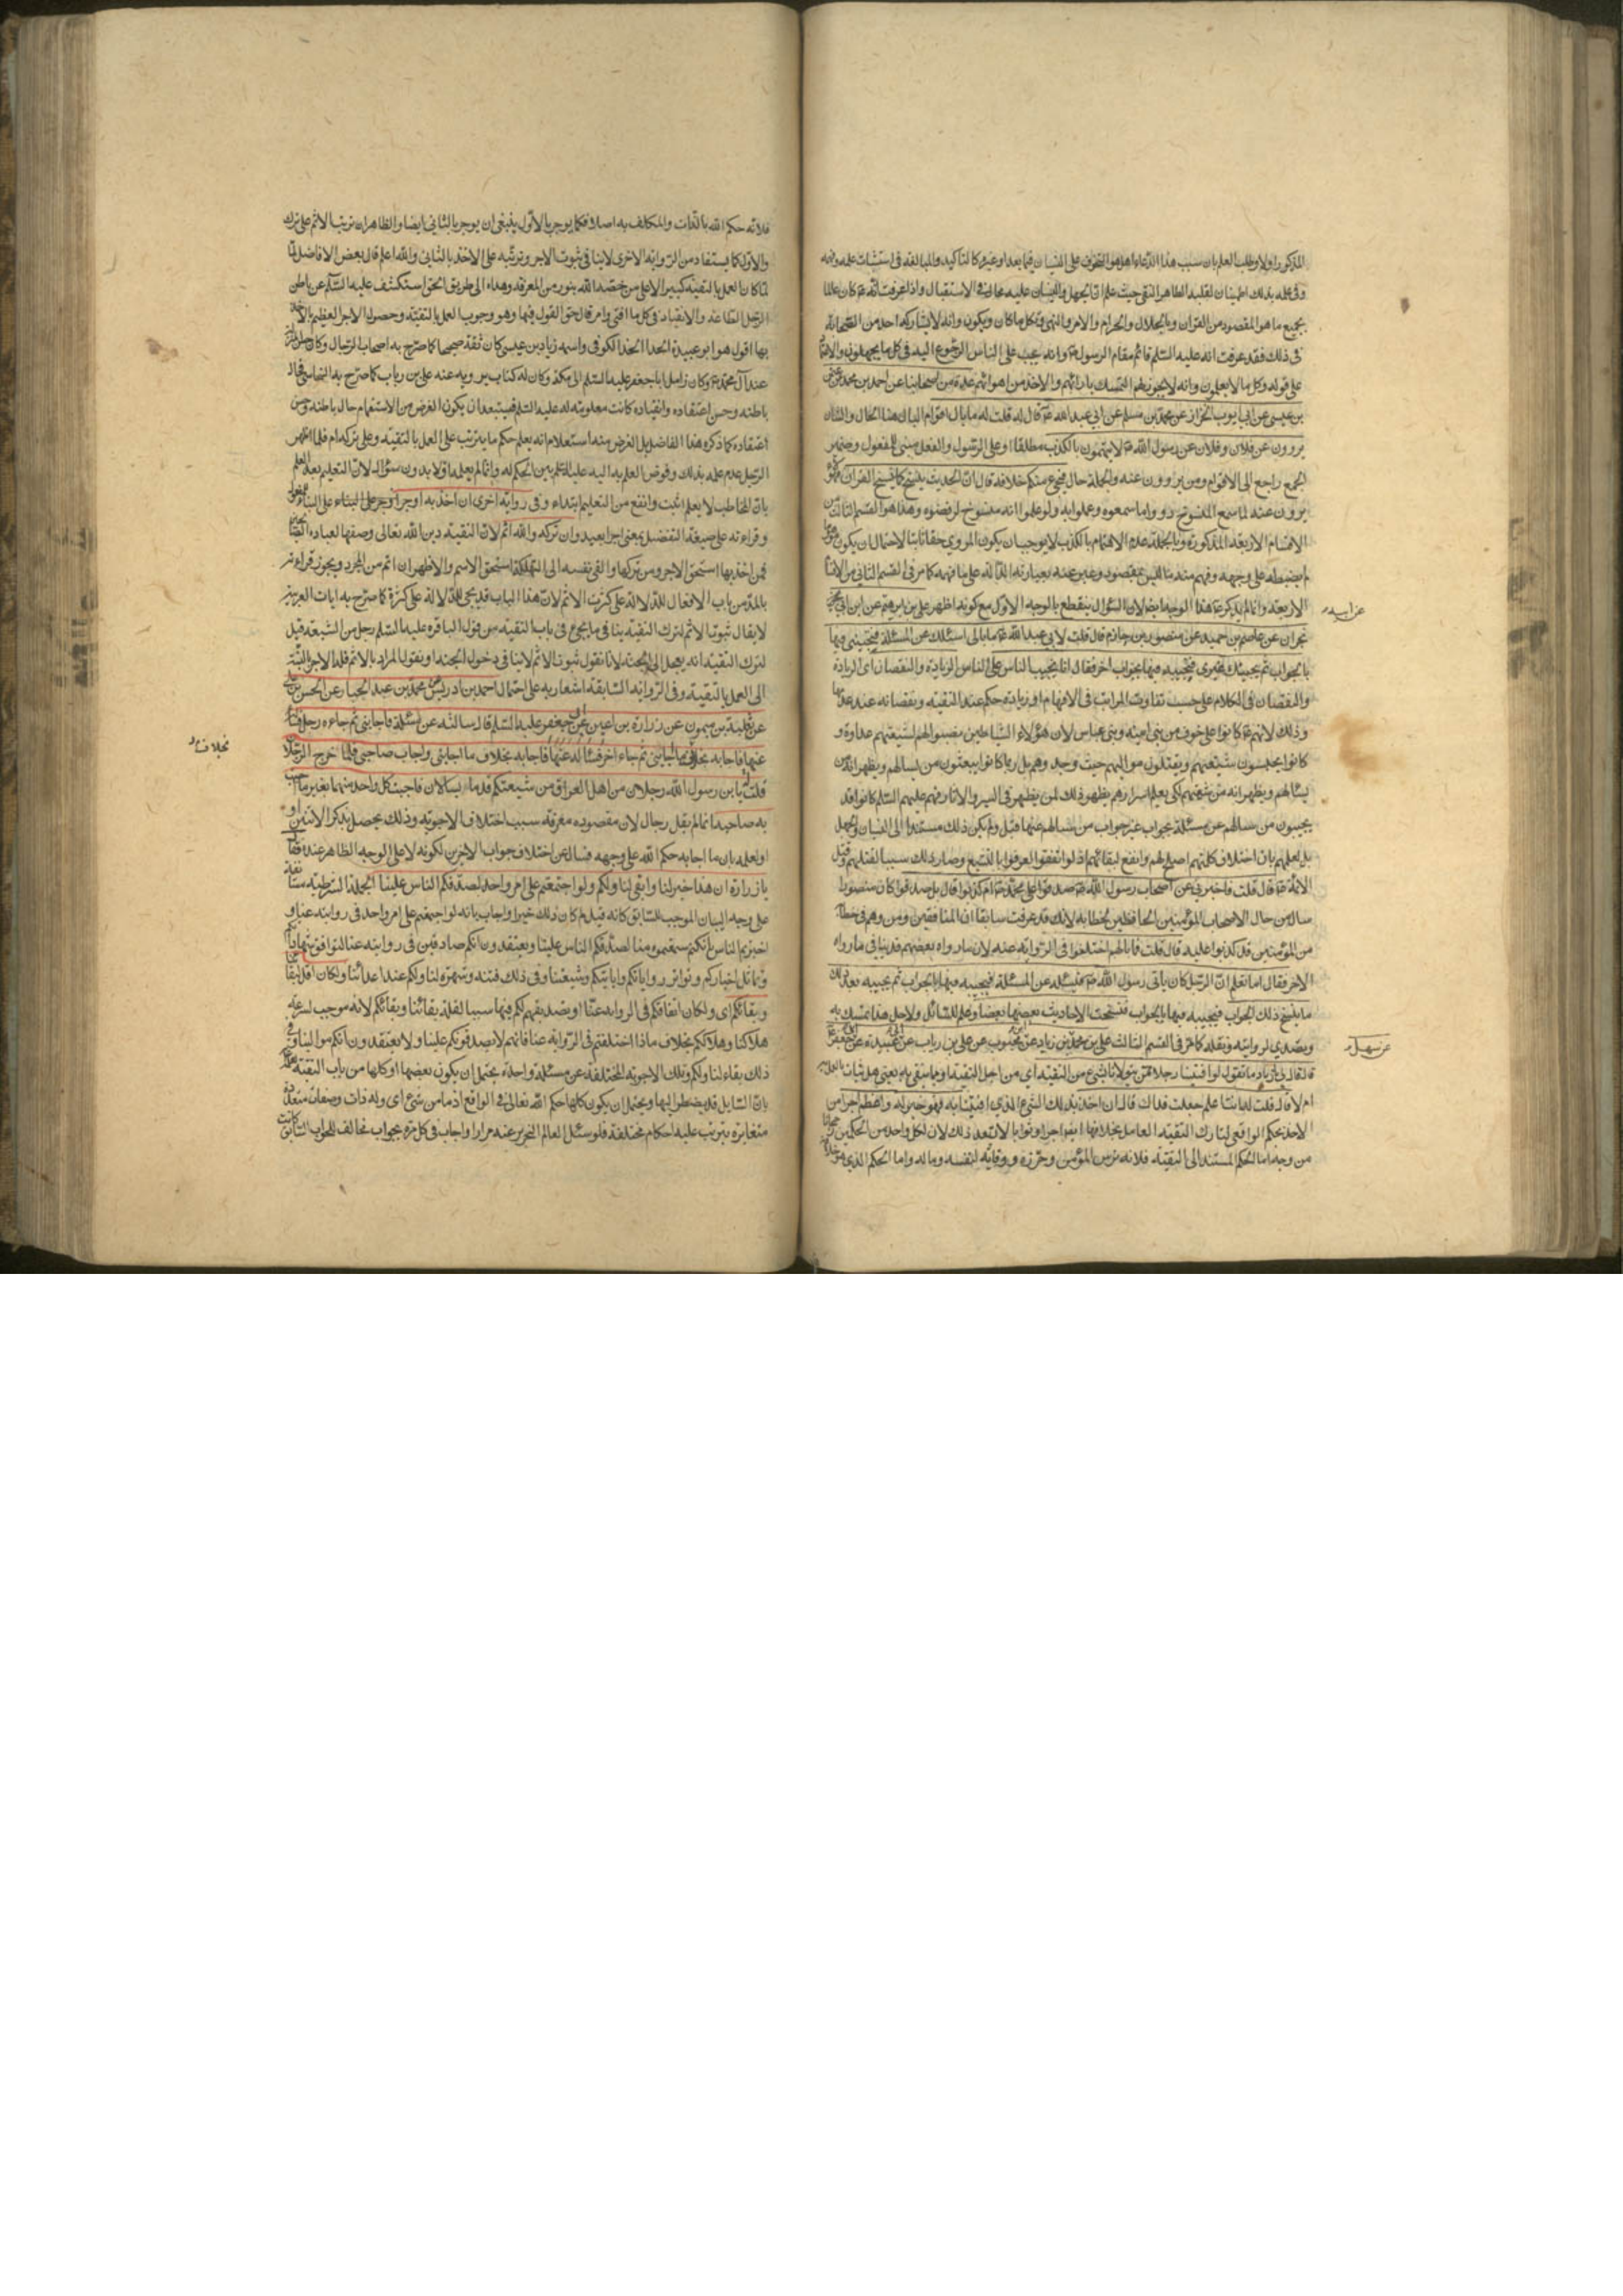 المذكور اولا وطلب العلم بان سبب هذا الدعاء هل هو التخوف على النسيان فيما بعد او غيره كالتأكيد والمبالغة فى استثبات علمه وفهمه
وفى بذلك اطمينان لقلبه الطاهر النقى حيث علم ان الجهل والنسيان عليه محال فى الاستقبال واذا عرفت انه ع كان عالما
بجميع ما هو المقصود من القران وبالحلال والحرام والامر والنهى وبكل ما كان ويكون وانه لا يشاركه احد من الصحابة
فى ذلك فقد عرفت انه عليه السلم قائم مقام الرسول ص وانه يجب على الناس الرجوع اليه فى كل ما يجهلون
على قوله وكل ما لا يعلمون وانه لا يجوز لهم التمسك بارائهم والاخذ من اهوائهم عدة من اصحابنا عن احمد بن محمد عن عثمن
بن عيسى عن ابى ايوب الخزاز عن محمد بن مسلم عن ابى عبد الله ع قال قلت له ما بال اقوام البال هنا الحال والشان
يروون عن فلان وفلان عن رسول الله ص لا يتهمون بالكذب مطلقا او على الرسول والفعل مبنى للمفعول وضمير
الجمع راجع الى الاقوام ومن يروون عنه والجملة حال فيجئ منكم خلافه قال ان الحديث ينسخ كما ينسخ القران
يروون عنه لما سمع المنسوخ رووا ما سمعوه وعملوا به ولو علموا انه منسوخ لرفضوه وهذا هو القسم الثالث من
الاقسام الاربعة المذكورة وبالجملة عدم الاتهام بالكذب لا يوجب ان يكون المروى حقا ثابتا لاحتمال ان يكون
لم يضبطه على وجهه وفهم منه ما ليس بمقصود وعبر عنه بعبارته الدالة على ما فهمه كما مر فى القسم الثانى من الاقسام
الاربعة وانما لم يذكر ع هذا الوجه ايضا لان السؤال ينقطع بالوجه الاول مع كونه اظهر على بن ابرهيم عن ابن ابى
عن ابيه
نجران عن عاصم بن حميد عن منصور بن حازم قال قلت لابى عبد الله ع ما بالى اسئلك عن المسئلة فتجيبنى فيها
بالجواب ثم يجيئك غيرى فتجيبه فيها بجواب اخر فقال انا نجيب الناس على الزيادة والنقصان اى الزيادة
والنقصان فى الكلام على حسب تفاوت المراتب فى الافهام او زيادة حكم عند التقية ونقصانه عند عدمها
وذلك لانهم ع كانوا على خوف من بنى امية وبنى عباس لان هؤلاء الشياطين نصبوا لهم لشيعتهم عداوة و
كانوا يحبسون شيعتهم ويقتلون مواليهم حيث وجدوهم بل ربما كانوا يبعثون من يسالهم ويظهر انه من
يجيبون من سالهم عن مسئلة بجواب غير جواب من سالهم عنها قبل ولم يكن ذلك مستندا الى النسيان والجهل
بل لعلمهم بان اختلاف كلمتهم اصلح لهم وانفع لبقائهم اذ لو اتفقوا لعرفوا بالتشيع وصار ذلك سببا لقتلهم وقتل
الائمة ع قال قلت فاخبرنى عن اصحاب رسول الله ص صدقوا على محمد ص ام كذبوا قال بل صدقوا
من المؤمنين قد كذبوا عليه قال قلت فما بالهم اختلفوا فى الرواية عنه لان ما رواه بعضهم قد ينافى ما رواه
الاخر فقال اما تعلم ان الرجل كان يأتى رسول الله ص فيسئله عن المسئلة فيجيبه فيها بالجواب ثم يجيبه بعد ذلك
ما ينسخ ذلك الجواب فنسخت الاحاديث بعضها بعضا
عن سهل
ويتصدى لروايته ونقله كما مر فى القسم الثالث على بن محمد عن بن زياد عن ابن محبوب عن على بن رياب عن ابى عبيدة عن ابى جعفر ع
قال قال لى يا زياد ما تقول لو افتينا رجلا ممن يتولانا بشئ من التقية اى من اجل التقية
ام لا قال قلت له انت اعلم جعلت فداك قال ان اخذ بذلك الشئ الذى افتيناه به فهو خير له واعظم اجرا من
الاخذ بحكم الواقعى لتارك التقية العامل بخلافها
من وجه اما الحكم المستند الى التقية فلانه ترس المؤمن وحرزه ووقاية لنفسه وماله واما الحكم الذى
فلانه حكم الله بالذات والمكلف به اصلا فكما يوجر بالاول ينبغى ان يوجر بالثانى ايضا والظاهر ان ترتب الاثم على ترك
والاول كما يستفاد من الرواية الاخرى لا ينافى ثبوت الاجر وترتبه على الاخذ بالثانى والله اعلم قال بعض الافاضل
لما كان العمل بالتقية كبيرا الا على من خصه الله بنور من المعرفة وهداه الى طريق الحق استكشف عليه السلم عن باطن
الرجل الطاعة والانقياد فى كل ما افتى وامر قال حق القول فيها وهو وجوب العمل بالتقية وحصول الاجر العظيم بالاخذ
بها اقول هو ابو عبيدة الحذاء الكوفى واسمه زياد بن عيسى كان ثقة صحيحا كما صرح به اصحاب الرجال وكان
عند آل محمد ع وكان زامل ابا جعفر عليه السلم الى مكة وكان له كتاب يرويه عنه على بن رياب كما صرح به النجاشى
باطنه وحسن اعتقاده وانقياده كانت معلومة له عليه السلم فيستبعد ان يكون الغرض من الاستفهام حال باطنه وحسن
اعتقاده كما ذكره هذا الفاضل بل الغرض منه استعلام انه يعلم حكم ما يترتب على العمل بالتقية وعلى تركه ام لا فلما اظهر
الرجل عدم علمه بذلك وفوض العلم به اليه عليه السلم بين الحكم له وانما لم يعلمه اولا بدون سؤال لان التعليم بعد العلم
بان المخاطب لا يعلم اثبت وانفع من التعليم ابتداء وفى رواية اخرى ان اخذ به اوجر
وقراءته على صيغة التفضيل بمعنى اجرا بعيد وان تركه والله اثم لان التقية دين الله تعالى وضعها لعباده
فمن اخذ بها استحق الاجر ومن تركها والقى نفسه الى التهلكة استحق الاثم والاظهر ان اثم من المجرد ويجوز قراءته
بالمد من باب الافعال للدلالة على كثرت الاثم لان هذا الباب قد يجئ للدلالة على كثرة كما صرح به ايات العربية
لا يقال ثبوت الاثم لترك التقية ينافى ما يجئ فى باب التقية من قول الباقر ع عليه السلم رجل من الشيعة قيل
لترك التقية انه يعجل الى الجنة لانا نقول ثبوت الاثم لا ينافى دخول الجنة او نقول المراد بالاثم قلة الاجر بالنسبة
الى العمل بالتقية وفى الرواية السابقة اشعار به على احتمال احمد بن ادريس عن محمد بن عبد الجبار عن الحسن بن على
عن ثعلبة بن ميمون عن زرارة بن اعين عن ابى جعفر عليه السلم قال سالته عن مسئلة فاجابنى ثم جاءه رجل فسأله
بخلاف ما
عنها فاجابه بخلاف ما اجابنى ثم جاء اخر فسأله عنها فاجابه بخلاف ما اجابنى واجاب صاحبى فلما خرج الرجلان
قلت يا بن رسول الله رجلان من اهل العراق من شيعتكم قدما يسالان فاجبت كل واحد منهما بغير ما اجبت
به صاحبه انما لم يقل رجال لان مقصوده معرفة سبب اختلاف الاجوبة وذلك يحصل بذكر الاثنين او
او لعلمه بان ما اجابه حكم الله على وجهه فسال عن اختلاف جواب الاخرين لكونه لا على الوجه الظاهر عنده فقال
يا زرارة ان هذا خير لنا وابقى لنا ولكم ولو اجتمعتم على امر واحد لصدقكم الناس علينا الجملة الشرطية
على وجه البيان الموجب للسابق كانه قيل لم كان ذلك خيرا واجاب بانه لو اجتمعتم على امر واحد فى روايته عنا و
اخبرتم الناس بانكم سمعتموه منا لصدقكم الناس علينا ويعتقدون انكم صادقين فى روايته عنا لتوافق شهاداتكم
وتماثل اخباركم وتواتر رواياتكم وفى ذلك فتنة وشهرة لنا ولكم عند اعدائنا ولكان اقل لبقائنا
وبقائكم اى ولكان اتفاقكم فى الرواية عنا او تصديقهم لكم فيها سببا لقلة بقائنا وبقائكم لانه موجب لسرعة
هلاكنا وهلاككم بخلاف ما اذا اختلفتم فى الرواية عنا فانهم لا يصدقونكم علينا ولا يعتقدون انكم موالينا وفى
ذلك بقاء لنا ولكم وتلك الاجوبة المختلفة عن مسئلة واحدة يحتمل ان يكون بعضها او كلها من باب التقية
بان السايل قد يضطر اليها ويحتمل ان يكون كلها حكم الله تعالى فى الواقع اذ ما من شئ اى وله ذات وصفات متعددة
متغايرة يترتب عليه احكام مختلفة فلو سئل العالم النحرير عنه مرارا واجاب فى كل مرة بجواب مخالف للجواب السابق